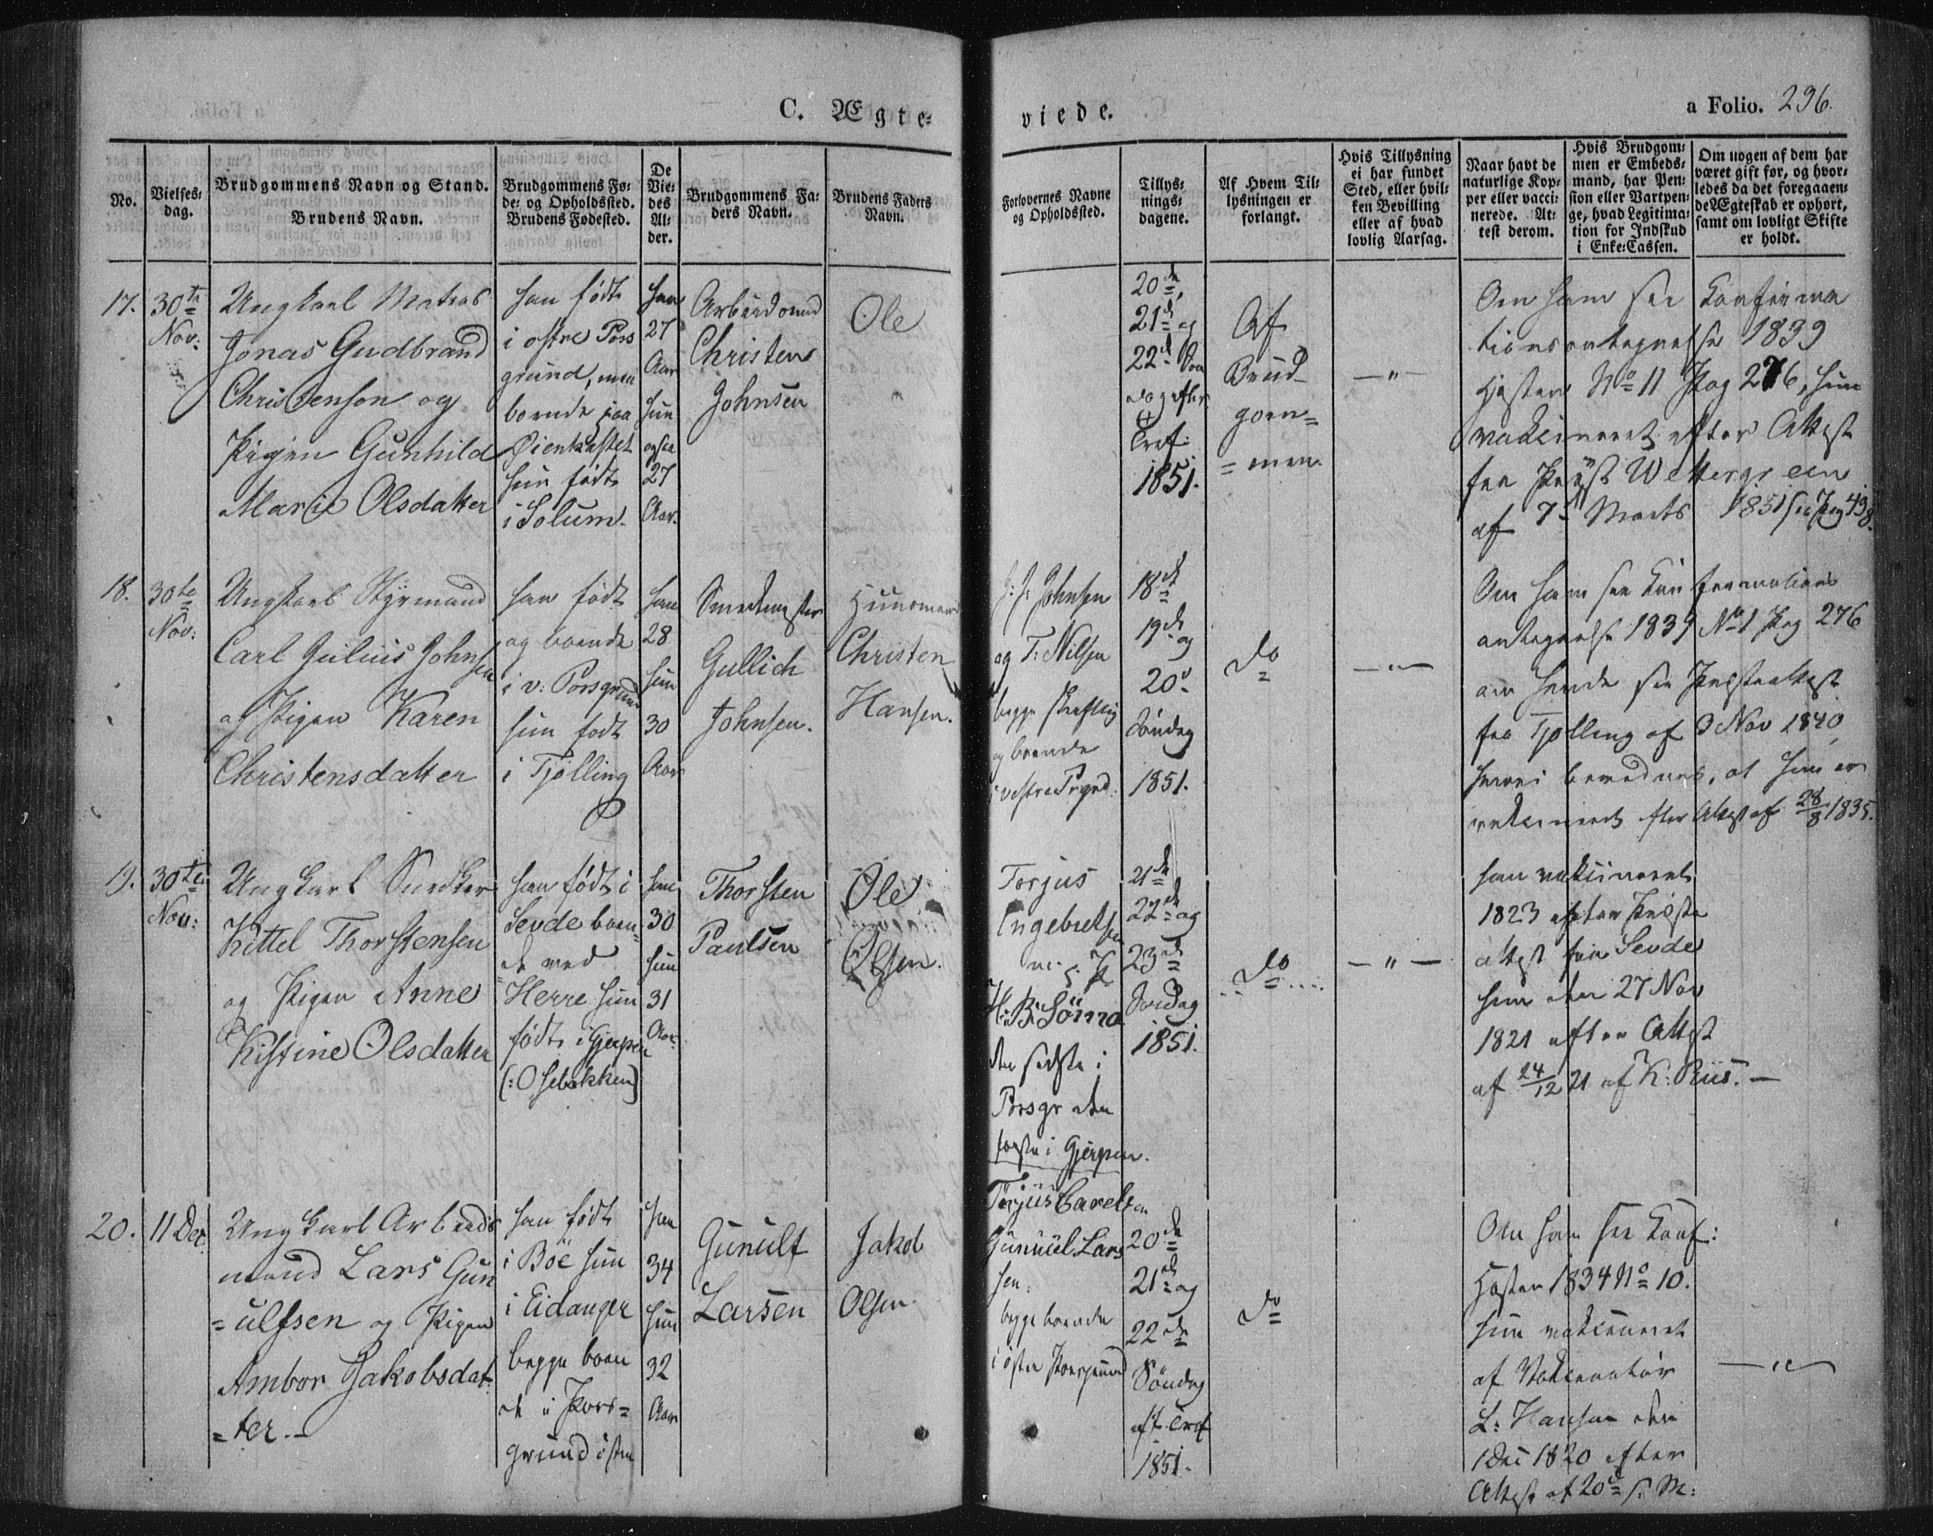 C. Ægte-
viede.
a Folio. 296.
No.
Vielses-
dag.
Brudgommens Navn og Stand.
Brudens Navn.
Brudgommens Fø-
de- og Opholdssted.
Brudens Fødested.
De
Vie-
des
Al-
der.
Brudgommens Fa-
ders Navn.
Brudens Faders
Navn.
Forlovernes Navne
og Opholdssted.
Tillys-
nings-
dagene.
Af Hvem Til-
lysningen er
forlangt.
Hvis Tillysning
ei har fundet
Sted, eller hvil-
ken Bevilling
eller af hvad
lovlig Aarsag.
Naar havt de
naturlige Kop-
per eller vacci-
nerede. At-
test derom.
Hvis Brudgom-
men er Embeds-
mand, har Pen-
sion eller Vartpen-
ge, hvad Legitima-
tion for Indskud
i Enke-Cassen.
Om nogen af dem har
været gift før, og hvor-
ledes da det foregaaen-
de Ægteskab er ophørt,
samt om lovligt Skifte
er holdt.
17.
30te
Nov:
Ungkarl Matros
Jonas Gudbrand
Christenson og
Pigen Gunhild
Marie Olsdatter
han født
i østre Pors
grund, men
boende paa
Øienkastet
hun født
i Solum.
han
27
Aar
hun
ogsaa
27
Aar.
Arbeidsmand
Christen
Johnsen
Ole
20de,
21de og
22de Søn
dag efter
Tref:
1851.
Af
Brud-
gom=
=men.
—"—
Om ham see Konfirma
tionsantegnelse 1839
Høsten No 11 Pag 276, hun
vakcineret efter Attest
fra Pr Wettergreen
af 7de Marts 1851 see Pag 498.
18.
30te
Nov:
Ungkarl Styrmand
Carl Julius Johnsen
og Pigen Karen
Christensdatter
han født
og boende
i v: Porsgrund
hun født
i Tjølling
han
28
hun
30
Aar
Smedmester
Gullich
Johnsen.
Huusmand
Christen
Hansen.
J: J: Johnsen
og T: Nilsen
begge
og boende
i vestre Prgrd.
18de
19de og
20de
Søndag
1851.
do
—"—
Om ham see Konfirmations
antegnelse 1839 No 1 Pag 276
om hende see Presteattest
fra Tjølling af 3 Nov 1840,
hvori bevidnes, at hun er
vakcineret efter Attest af 28/8 1835.
19.
30te
Nov:
Ungkarl
Kittel Thorstensen
og Pigen Anne
Kistine Olsdatter
han født i
Sevde boen-
de ved
Herre hun
født i Gjerpen
(: Osebakken)
han
30
hun
31
Aar.
Thorsten
Paulsen
Ole
Olsen.
Torjus
Engebretsen
H: B:
den sidste i
Porsgr den
første i Gjerpen.
21de
22de og
23de
Søndag
1851.
do
—"—
han vakcineret
1823 efter Præste
attest fra Sevde
hun den 27 Nov
1821 efter Attest
af 24/12 21 af K: Riis. —
20.
11 Dec.
Ungkarl Arbeids
mand Lars Gun
=ulfsen og Pigen
Ambor Jakobsdat
=ter.—
han født
i Böe hun
i Eidanger
begge boen
de i Pors=
grund østre
han
34
hun
32
Aar
Gunulf
Larsen
Jakob
Olsen.
Torjus Carelsen
Gunuul Lars
sen.
begge boende
i østre Porsgrund
20de
21de og
22de
Søndag
eft. Tref
1851.
do
Om ham see Conf:
Høsten 1834 No 10.
hun vakcineret
af Vakcinatør
L: Hansen den
1 Dec 1820 efter
Attest af 20de s: M:
—"—